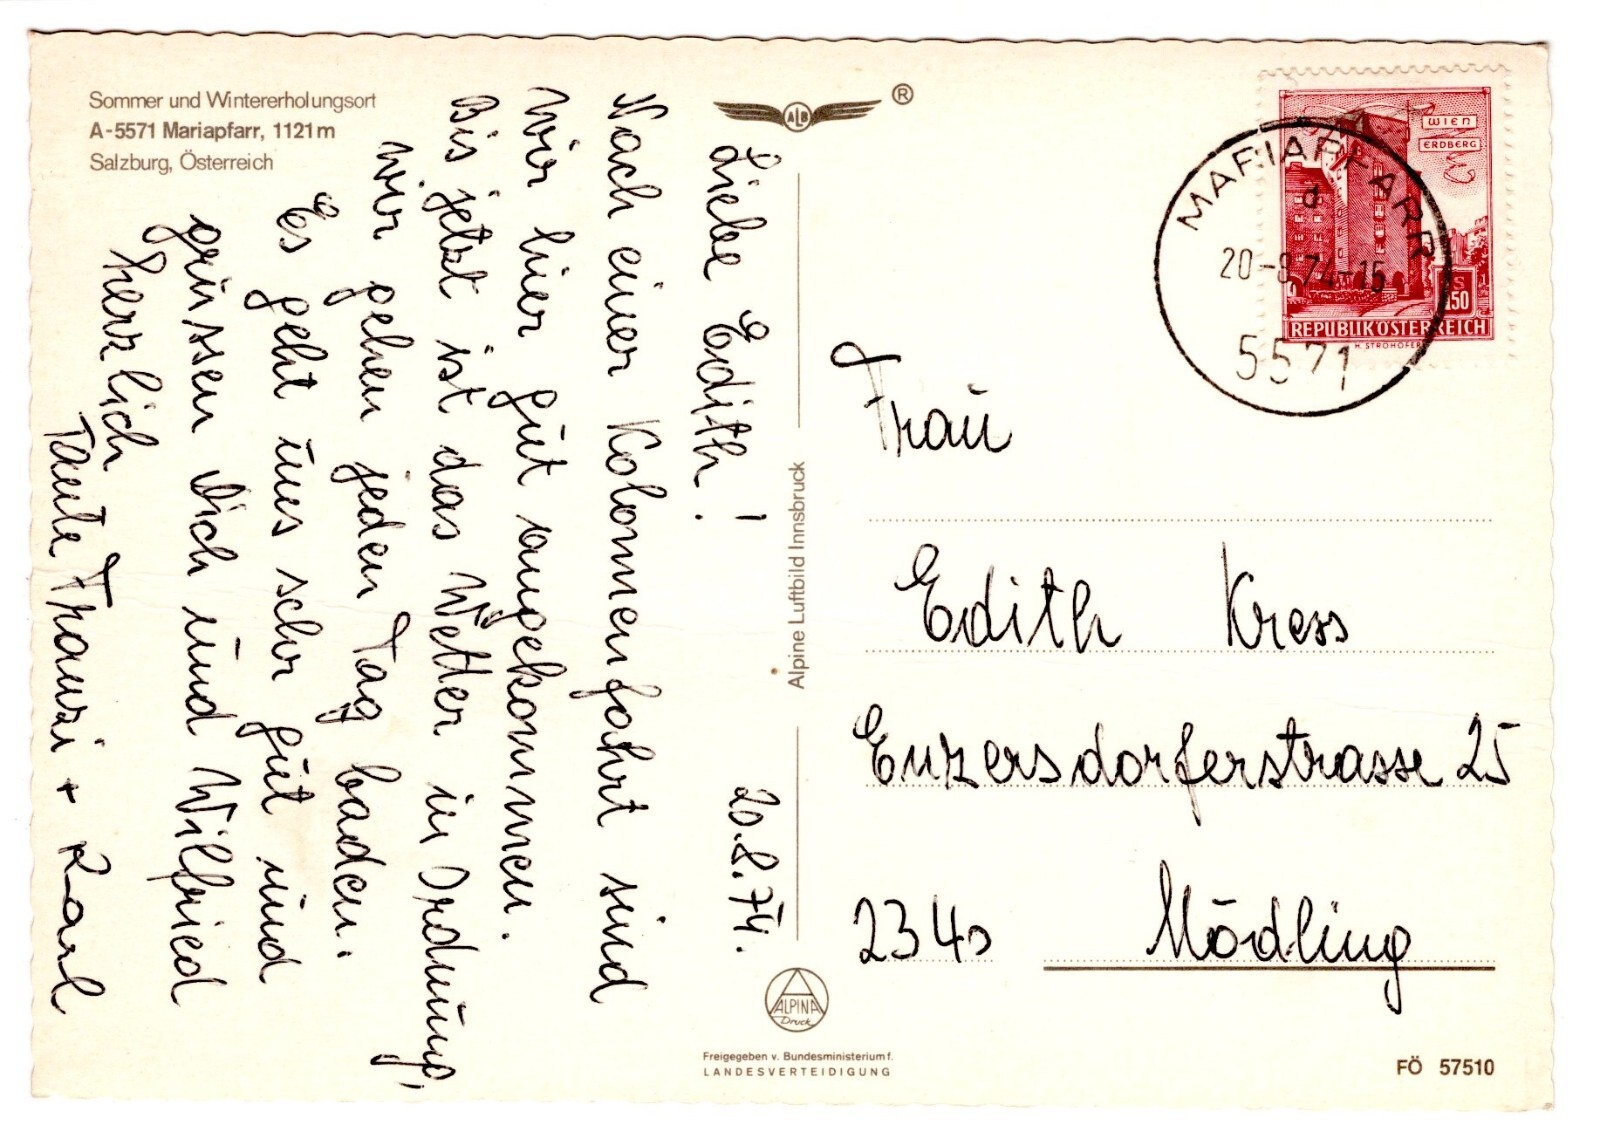 Sommer und Wintererholungsort
A-5571 Mariapfarr, 1121 m
Salzburg, Österreich
ALB
®
20.8.74.
Liebe Edith!
Nach einer Kolonnenfahrt sind
wir hier gut angekommen.
Bis jetzt ist das Wetter in Ordnung,
wir gehen jeden Tag baden.
Es geht uns sehr gut und
grüssen Dich und Wilfried
herzlich
Tante Franzi + Karl
Alpine Luftbild Innsbruck
ALPINA
Druck
Freigegeben v. Bundesministerium f.
LANDESVERTEIDIGUNG
WIEN
ERDBERG
S
1.50
REPUBLIK ÖSTERREICH
H. STROHOFER
MARIAPFARR
d
20-8.74-15
5571
Frau
Edith Kress
Enzersdorferstrasse 25
2340 Mödling
FÖ 57510